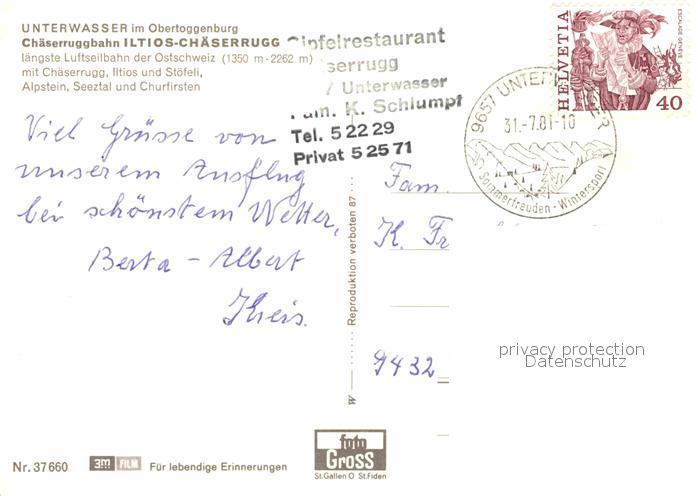 UNTERWASSER im Obertoggenburg
Chäserruggbahn ILTIOS-CHÄSERRUGG
längste Luftseilbahn der Ostschweiz (1350 m-2262 m)
mit Chäserrugg, Iltios und Stöfeli,
Alpstein, Seeztal und Churfirsten
Gipfelrestaurant
serrugg
/ Unterwasser
Fam. K. Schlumpf
Tel. 5 22 29
Privat 5 25 71
9657 UNTERWASSER
31.-7.81-10
Sommerfreuden - Wintersport
HELVETIA
ESCALADE GENÈVE
40
Viel Grüsse von
unserem Ausflug
bei schönstem Wetter,
Berta - Albert
Kreis.
Fam.
K. Fr
9432
W Reproduktion verboten 87
privacy protection
Datenschutz
Nr. 37 660
3M FILM
Für lebendige Erinnerungen
foto
Gross
St.Gallen O St.Fiden